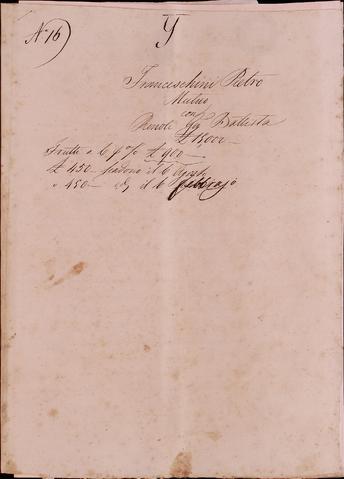 N. 16)
Y
Franceschini Pietro
Mutuo
con
Gio Batista
£ 15,000 —
Frutti a 6 p % £ 900 —
£ 450 — scadono il 6 Agosto
" 450 — il 6 febbrajo